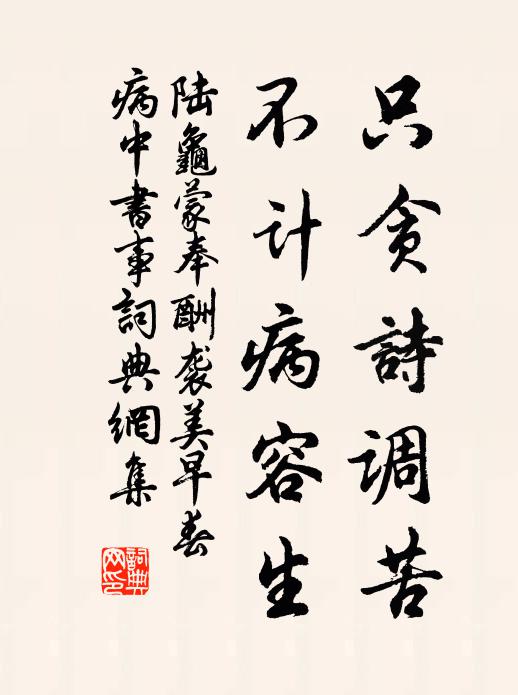 只贪詩调苦
不计病容生
陆龜蒙奉酬袭美早春
病中書事詞典網集
詞典网印